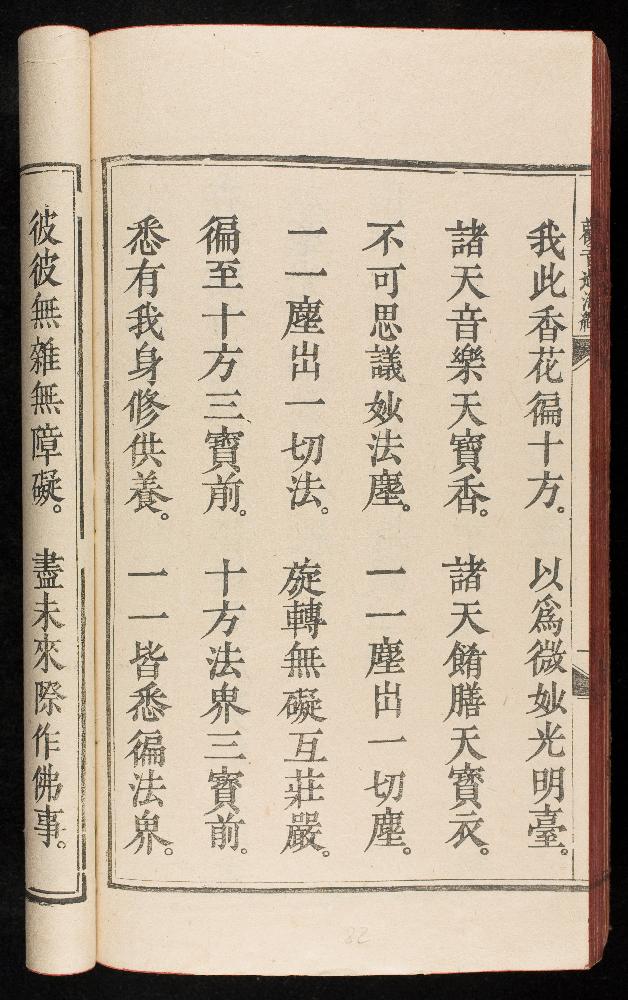 我此香花徧十方。以爲微妙光明臺。
諸天音樂天寶香。諸天餚膳天寶衣。
不可思議妙法塵。一一塵出一切塵。
一一塵出一切法。旋轉無礙互莊嚴。
徧至十方三寶前。十方法界三寶前。
悉有我身修供養。一一皆悉徧法界。
彼彼無雜無障礙。盡未來際作佛事。